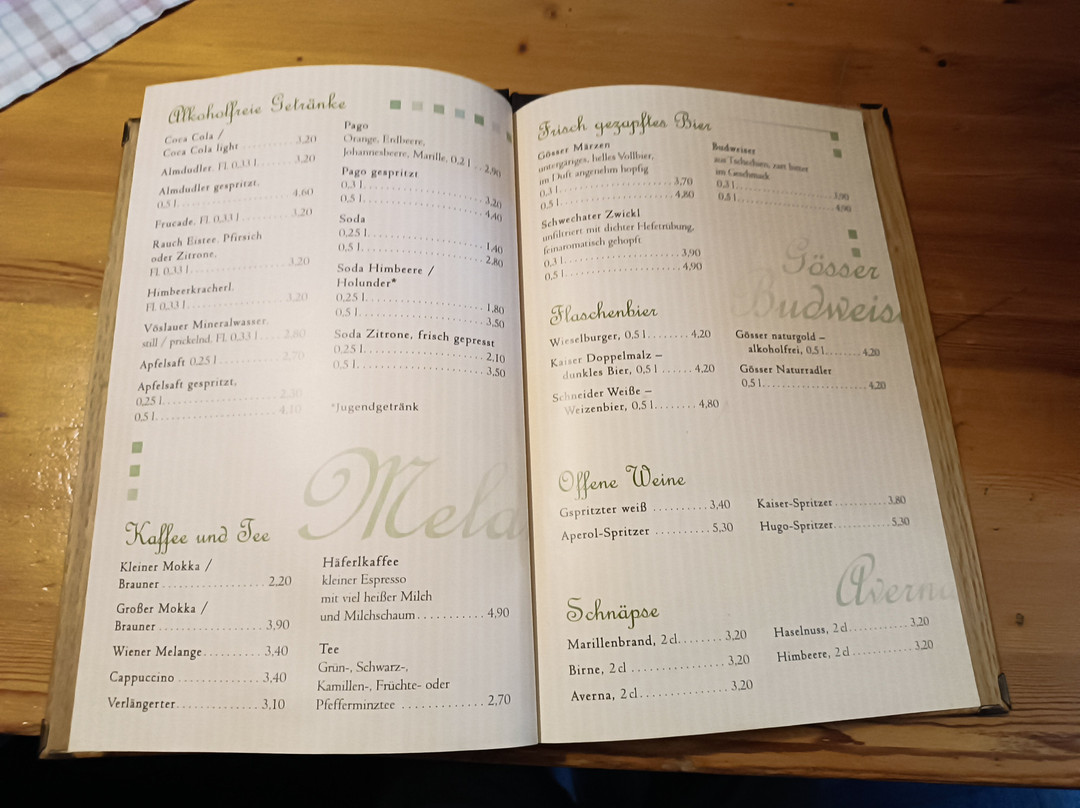 Alkoholfreie Getränke
Coca Cola /
Coca Cola light ........ 3,20
Almdudler, Fl. 0,33 l ........ 3,20
Almdudler gespritzt,
0,5 l ........ 4,60
Frucade, Fl. 0,33 l ........ 3,20
Rauch Eistee, Pfirsich
oder Zitrone,
Fl. 0,33 l ........ 3,20
Himbeerkracherl,
Fl. 0,33 l ........ 3,20
Vöslauer Mineralwasser,
still / prickelnd, Fl. 0,33 l .... 2,60
Apfelsaft 0,25 l ........ 2,70
Apfelsaft gespritzt,
0,25 l ........ 2,30
0,5 l ........ 4,10
Pago
Orange, Erdbeere,
Johannesbeere, Marille, 0,2 l .. 2,90
Pago gespritzt
0,3 l ........ 3,20
0,5 l ........ 4,40
Soda
0,25 l ........ 1,40
0,5 l ........ 2,80
Soda Himbeere /
Holunder*
0,25 l ........ 1,80
0,5 l ........ 3,50
Soda Zitrone, frisch gepresst
0,25 l ........ 2,10
0,5 l ........ 3,50
*Jugendgetränk
Mela
Kaffee und Tee
Kleiner Mokka /
Brauner ........ 2,20
Großer Mokka /
Brauner ........ 3,90
Wiener Melange ........ 3,40
Cappuccino ........ 3,40
Verlängerter ........ 3,10
Häferlkaffee
kleiner Espresso
mit viel heißer Milch
und Milchschaum ........ 4,90
Tee
Grün-, Schwarz-,
Kamillen-, Früchte- oder
Pfefferminztee ........ 2,70
Frisch gezapftes Bier
Gösser Märzen
untergäriges, helles Vollbier,
im Duft angenehm hopfig
0,3 l ........ 3,70
0,5 l ........ 4,80
Schwechater Zwickl
unfiltriert mit dichter Hefetrübung,
feinaromatisch gehopft
0,3 l ........ 3,90
0,5 l ........ 4,90
Budweiser
aus Tschechien, zart bitter
im Geschmack
0,3 l ........ 3,90
0,5 l ........ 4,90
Gösser
Budweis
Flaschenbier
Wieselburger, 0,5 l ........ 4,20
Kaiser Doppelmalz –
dunkles Bier, 0,5 l ...... 4,20
Schneider Weiße –
Weizenbier, 0,5 l ........ 4,80
Gösser naturgold –
alkoholfrei, 0,5 l ........ 4,20
Gösser Naturradler
0,5 l ........ 4,20
Offene Weine
Gspritzter weiß ........ 3,40
Aperol-Spritzer ........ 5,30
Kaiser-Spritzer ........ 3,80
Hugo-Spritzer ........ 5,30
Averna
Schnäpse
Marillenbrand, 2 cl ........ 3,20
Birne, 2 cl ........ 3,20
Averna, 2 cl ........ 3,20
Haselnuss, 2 cl ........ 3,20
Himbeere, 2 cl ........ 3,20